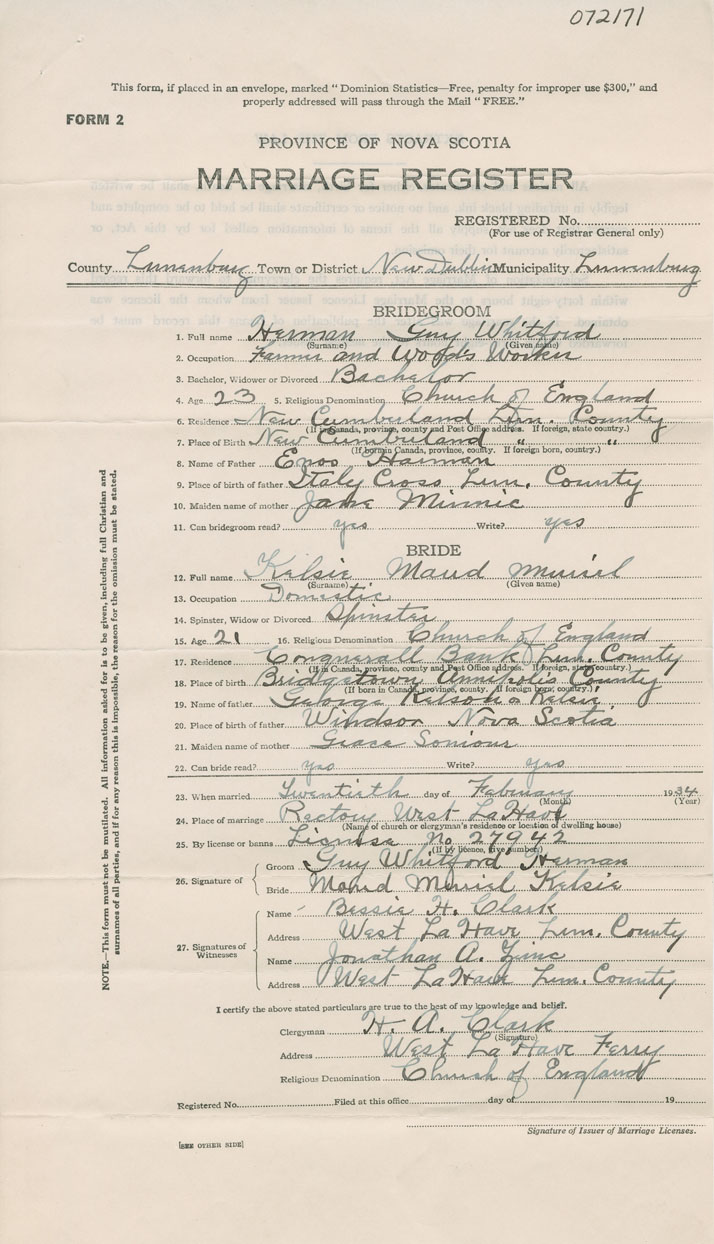 072171
This form, if placed in an envelope, marked "Dominion Statistics—Free, penalty for improper use $300," and
properly addressed will pass through the Mail "FREE."
FORM 2
PROVINCE OF NOVA SCOTIA
MARRIAGE REGISTER
REGISTERED No.
(For use of Registrar General only)
County Lunenburg Town or District New Dublin Municipality Lunenburg
BRIDEGROOM
1. Full name Herman Guy Whitford
(Surname) (Given name)
2. Occupation Farmer and Woods Worker
3. Bachelor, Widower or Divorced Bachelor
4. Age 23 5. Religious Denomination Church of England
6. Residence New Cumberland Lun. County
(If in Canada, province, county and Post Office address. If foreign, state country.)
7. Place of Birth New Cumberland " "
(If born in Canada, province, county. If foreign born, country.)
8. Name of Father Enos Haiman
9. Place of birth of father Italy Cross Lun. County
10. Maiden name of mother Jane Minnic
11. Can bridegroom read? yes Write? yes
BRIDE
12. Full name Kelsie Maud Muriel
(Surname) (Given name)
13. Occupation Domestic
14. Spinster, Widow or Divorced Spinster
15. Age 21 16. Religious Denomination Church of England
17. Residence Conquerall Bank Lun. County
(If in Canada, province, county and Post Office address. If foreign, state country.)
18. Place of birth Bridgetown Annapolis County
(If born in Canada, province, county. If foreign born, country.)
19. Name of father George Kelsie
20. Place of birth of father Windsor Nova Scotia
21. Maiden name of mother Grace
22. Can bride read? yes Write? yes
23. When married Twentieth day of February 1934
(Month) (Year)
24. Place of marriage Rectory West La Have
(Name of church or clergyman's residence or location of dwelling house)
25. By license or banns License No 27942
(If by licence, give number)
26. Signature of
Groom Guy Whitford Herman
Bride Maud Muriel Kelsie
27. Signatures of
Witnesses
Name Bessie H. Clark
Address West La Have Lun. County
Name Jonathan A. Zinc
Address West La Have Lun. County
I certify the above stated particulars are true to the best of my knowledge and belief.
Clergyman H. A. Clark
(Signature)
Address West La Have Ferry
Religious Denomination Church of England
Registered No. Filed at this office day of 19
Signature of Issuer of Marriage Licenses.
[SEE OTHER SIDE]
NOTE.—This form must not be mutilated. All information asked for is to be given, including full Christian and
surnames of all parties, and if for any reason this is impossible, the reason for the omission must be stated.